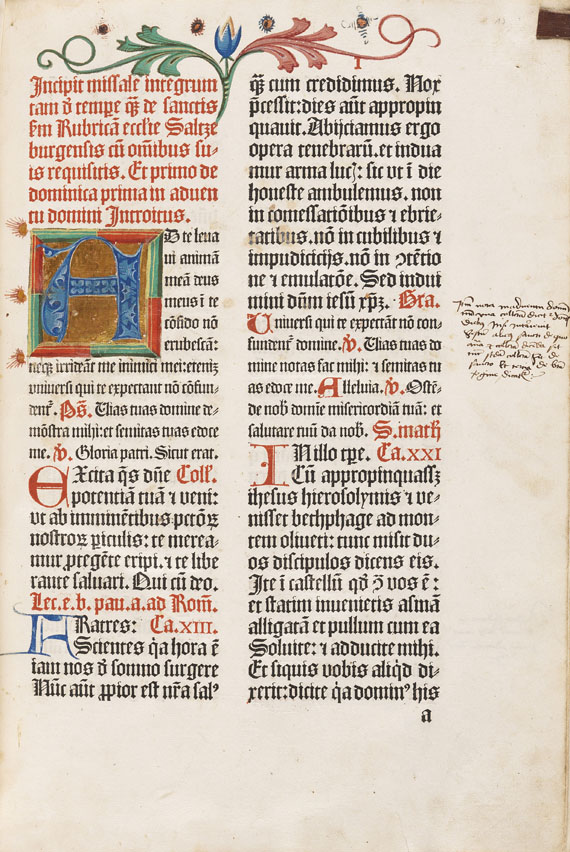 I
Incipit missale integrum
tam ꝺ̄ tempe qȝ̄ de sanctis
ẜm Rubricā eccl̄ie Saltze
burgensis cū om̄ibus su-
is requisitis. Et primo de
dominica prima in aduen
tu domini Introitus.
AD te leua
ui animā
meā deus
meus ī te
cōfido nō
erubescā:
neqꝫ irrideāt me inimici mei: etenīꝫ
vniuersi qui te expectant nō cōfun-
dent᷑. P̄s. Uias tuas domine de-
mōstra mihi: et semitas tuas edoce
me. ꝟ. Gloria patri. Sicut erat.
EXcita q̄s dn̄e Coll̄.
potentiam tuā ⁊ veni:
vt ab imminētibus pctōꝝ
nostroꝝ ꝑiculis: te merea-
mur ꝓtegēte eripi. ⁊ te libe
rante saluari. Qui cū deo.
Lec. e. b. pau. a. ad Rom̄.
FRatres: Ca. XIII.
Scientes q̇a hora ē
iam nos ꝺ̄ somno surgere
Nūc aūt ꝓpior est nr̄a salꝰ
qȝ̄ cum credidimus. Nox
p̄cessit: dies aūt appropin
quauit. Abijciamus ergo
opera tenebrarū. et indua
mur arma lucꝭ: sic vt ī die
honeste ambulemus. non
in comessatiōibus ⁊ ebrie-
tatibus. nō in cubilibus ⁊
impudicicijs. nō in ꝯtētio
ne ⁊ emulatōe. Sed indui
mini dūm iesū xp̄ꝫ. Gra.
Uniuersi qui te expectāt nō con-
fundent᷑ domine. ꝟ. Uias tuas do
mine notas fac mihi: ⁊ semitas tu
as edoce me. Alleluia. ꝟ. Ostē-
de nob̄ domīe misericordiā tuā: et
salutare tuū da nob̄. S. math
IN illo tꝑe. Ca. XXI
Cū appropinquassꝫ
ihesus hierosolymis ⁊ ve-
nisset bethphage ad mon-
tem oliueti: tunc misit du-
os discipulos dicens eis.
Ite ī castellū qd̄ ꝯ̄ vos ē:
et statim inuenietis asinā
alligatā et pullum cum ea
Soluite: ⁊ adducite mihi.
Et siquis vobis aliqd̄ di-
xerit: dicite q̇a dominꝰ his
a